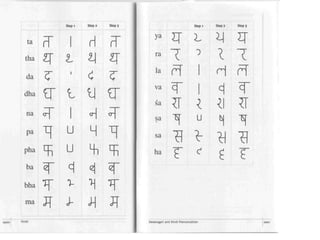 Step 1 Step 2 Step 3
ta त त त
tha थ थ थ
da द द
dha ध ध
na न न न
pa प प प
pha फ फ फ
ba ब ब ब
bha भ भ भ
ma म म म
Hindi
Step 1 Step 2 Step 3
ya य य य
ra र र
la ल ल ल
va व व व
śa श श श
ṣa ष ष ष
sa स स स
ha ह ह
Devanagari and Hindi Pronunciation